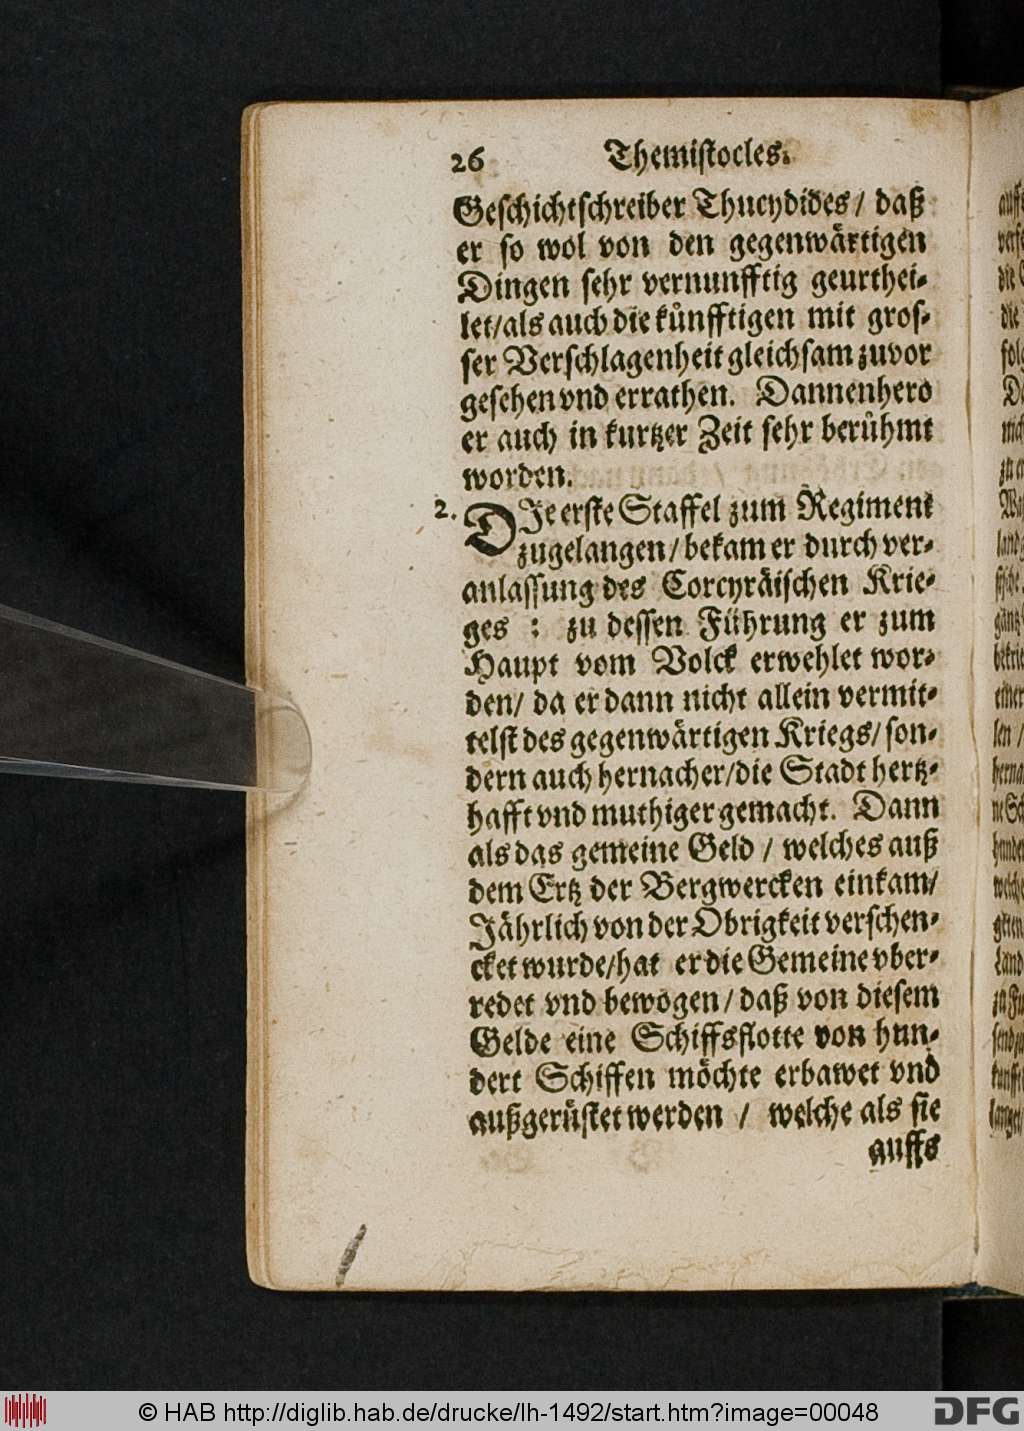 26 Themistocles.
Geschichtschreiber Thucydides / daß
er so wol von den gegenwärtigen
Dingen sehr vernunfftig geurthei-
let/als auch die künfftigen mit gros-
ser Verschlagenheit gleichsam zuvor
gesehen vnd errathen. Dannenhero
er auch in kurtzer Zeit sehr berühmt
worden.
2. DIe erste Staffel zum Regiment
zugelangen / bekam er durch ver-
anlassung des Corcyräischen Krie-
ges : zu dessen Führung er zum
Haupt vom Volck erwehlet wor-
den/ da er dann nicht allein vermit-
telst des gegenwärtigen Kriegs/ son-
dern auch hernacher/die Stadt hertz-
hafft vnd muthiger gemacht. Dann
als das gemeine Geld / welches auß
dem Ertz der Bergwercken einkam/
Jährlich von der Obrigkeit verschen-
cket wurde/hat er die Gemeine vber-
redet vnd bewogen / daß von diesem
Gelde eine Schiffsflotte von hun-
dert Schiffen möchte erbawet vnd
außgerüstet werden / welche als sie
auffs
© HAB http://diglib.hab.de/drucke/lh-1492/start.htm?image=00048
DFG